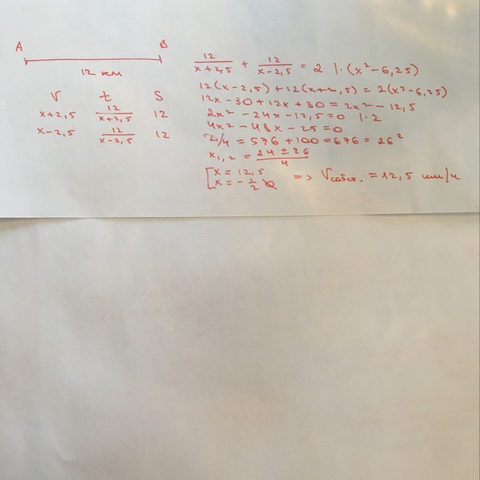 A B
12 км
V t S
x+2,5 12/(x+2,5) 12
x-2,5 12/(x-2,5) 12
12/(x+2,5) + 12/(x-2,5) = 2 |·(x²-6,25)
12(x-2,5)+12(x+2,5) = 2(x²-6,25)
12x-30+12x+30=2x²-12,5
2x²-24x-12,5=0 |·2
4x²-48x-25=0
D/4=576+100=676=26²
x₁,₂=(24±26)/4
[x=12,5
[x=-1/2
=> Vсобст.=12,5 км/ч